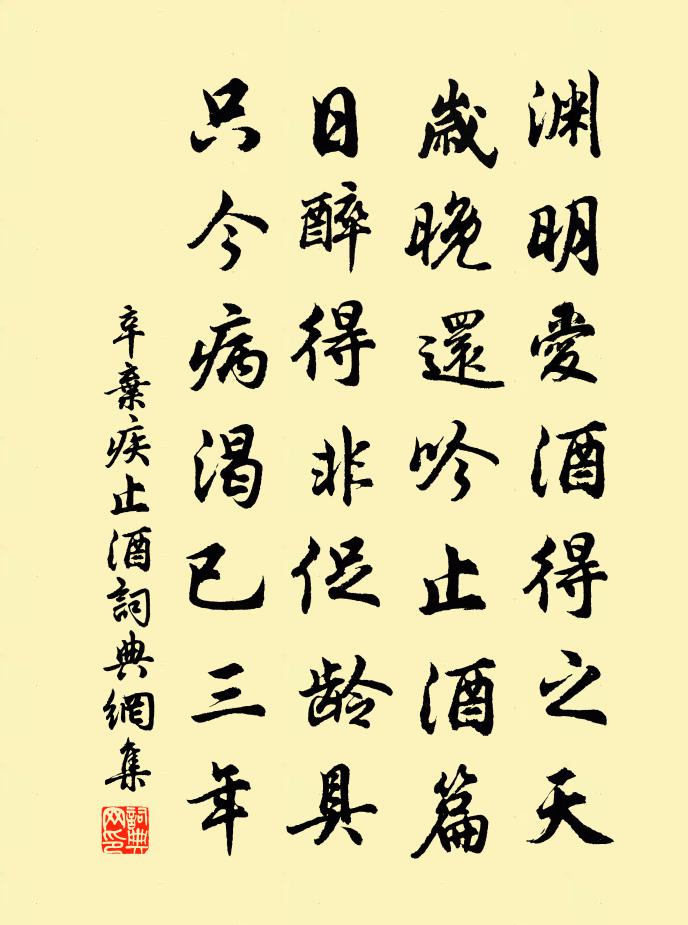 渊明愛酒得之天
歲晚還吟止酒篇
日醉得非促齡具
只今病渴已三年
辛棄疾止酒詞典網集
詞典网印